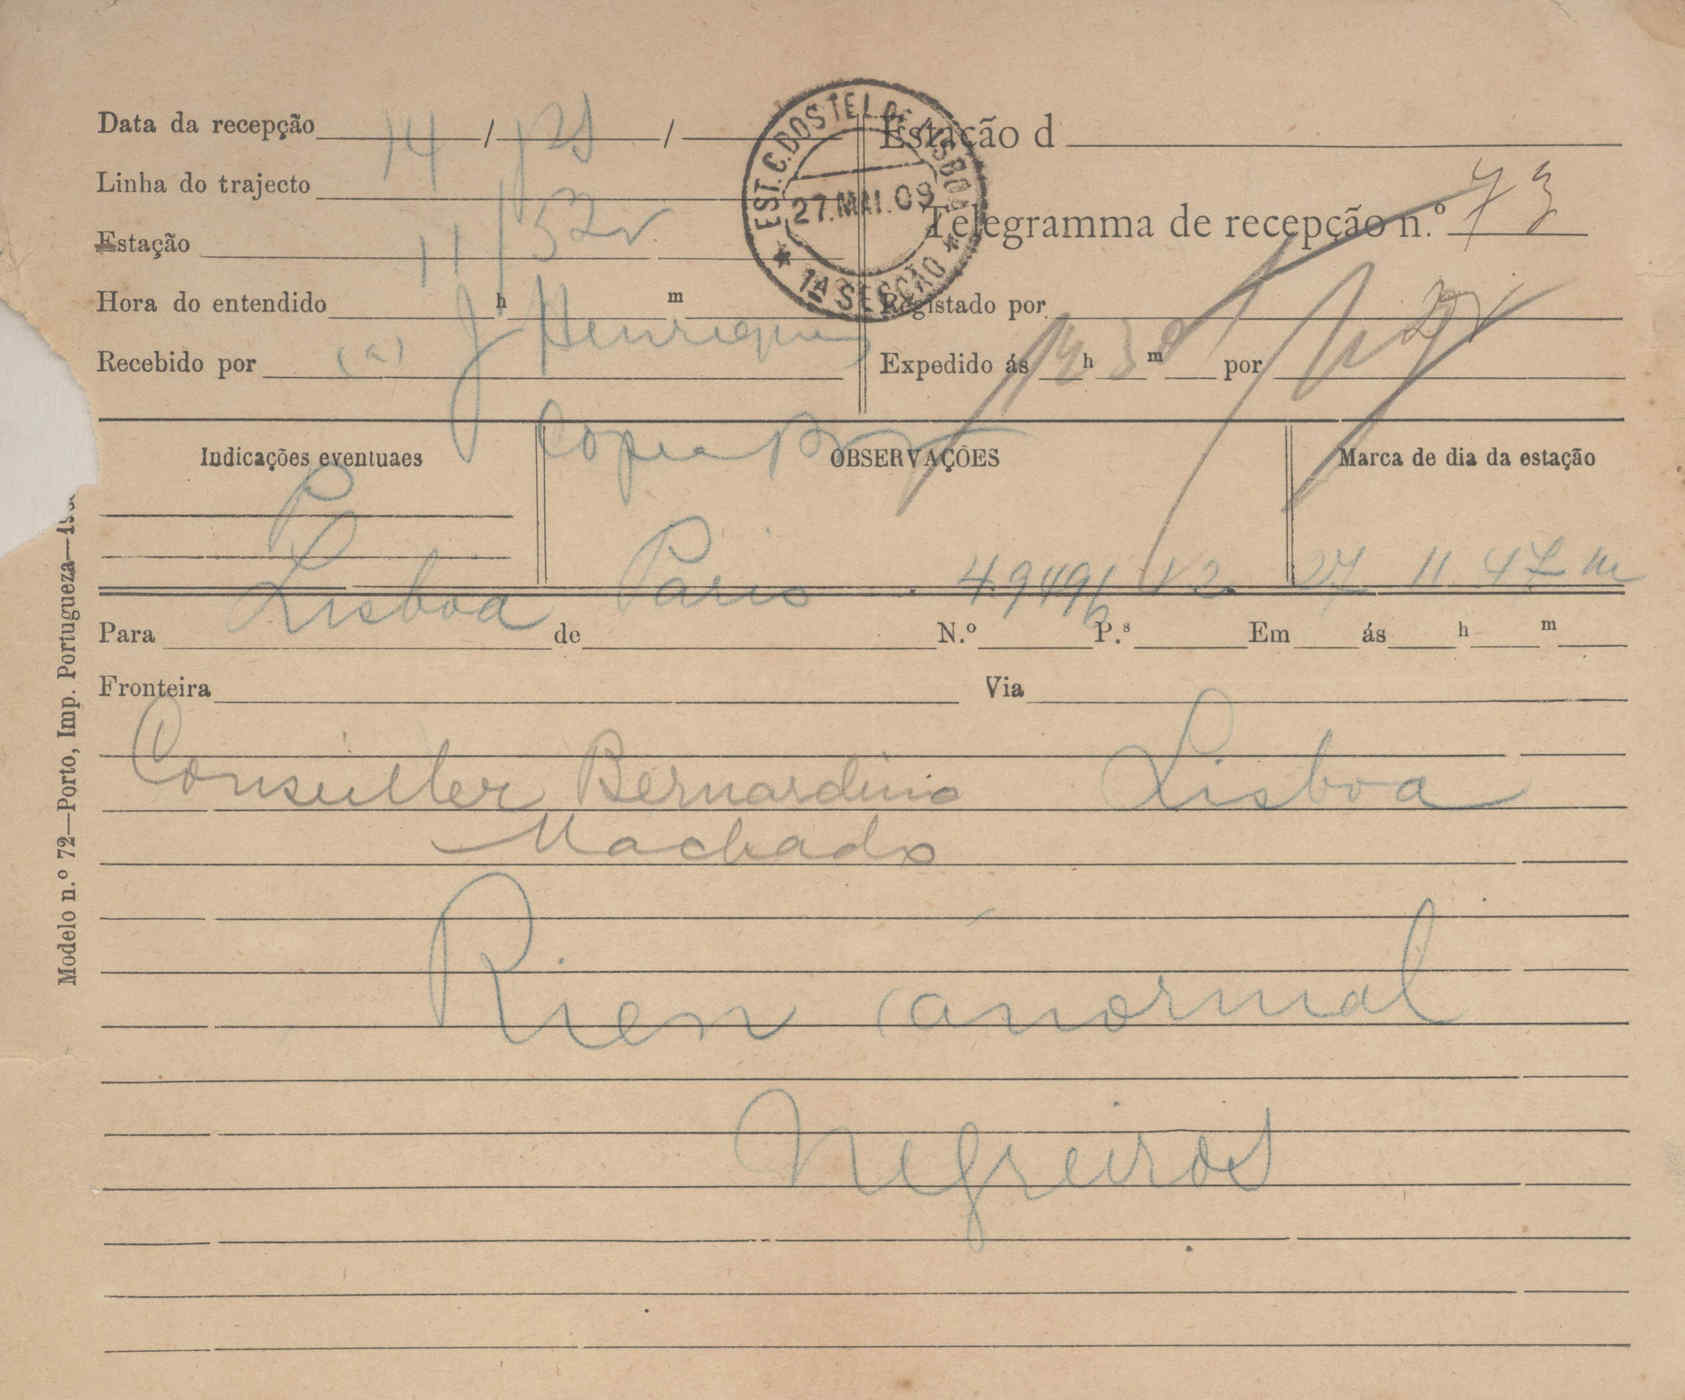 Data da recepção 14 / /
Linha do trajecto
Estação
Hora do entendido 11 h 52 m
Recebido por (a) J Henriques
EST. C. DOS TEL. DE LISBOA
27.MAI.09
1ª SECÇÃO
Estação d
Telegramma de recepção n.º 73
Registado por
Expedido ás h m por
Copia
Indicações eventuaes
OBSERVAÇÕES
Marca de dia da estação
P
Para Lisboa de Paris N.º 49496 P.s 12 Em 27 ás 11 h 47 m
Fronteira Via
Bernardino Lisboa
Machado
Rien anormal
Negreiros
Modelo n.º 72—Porto, Imp. Portugueza